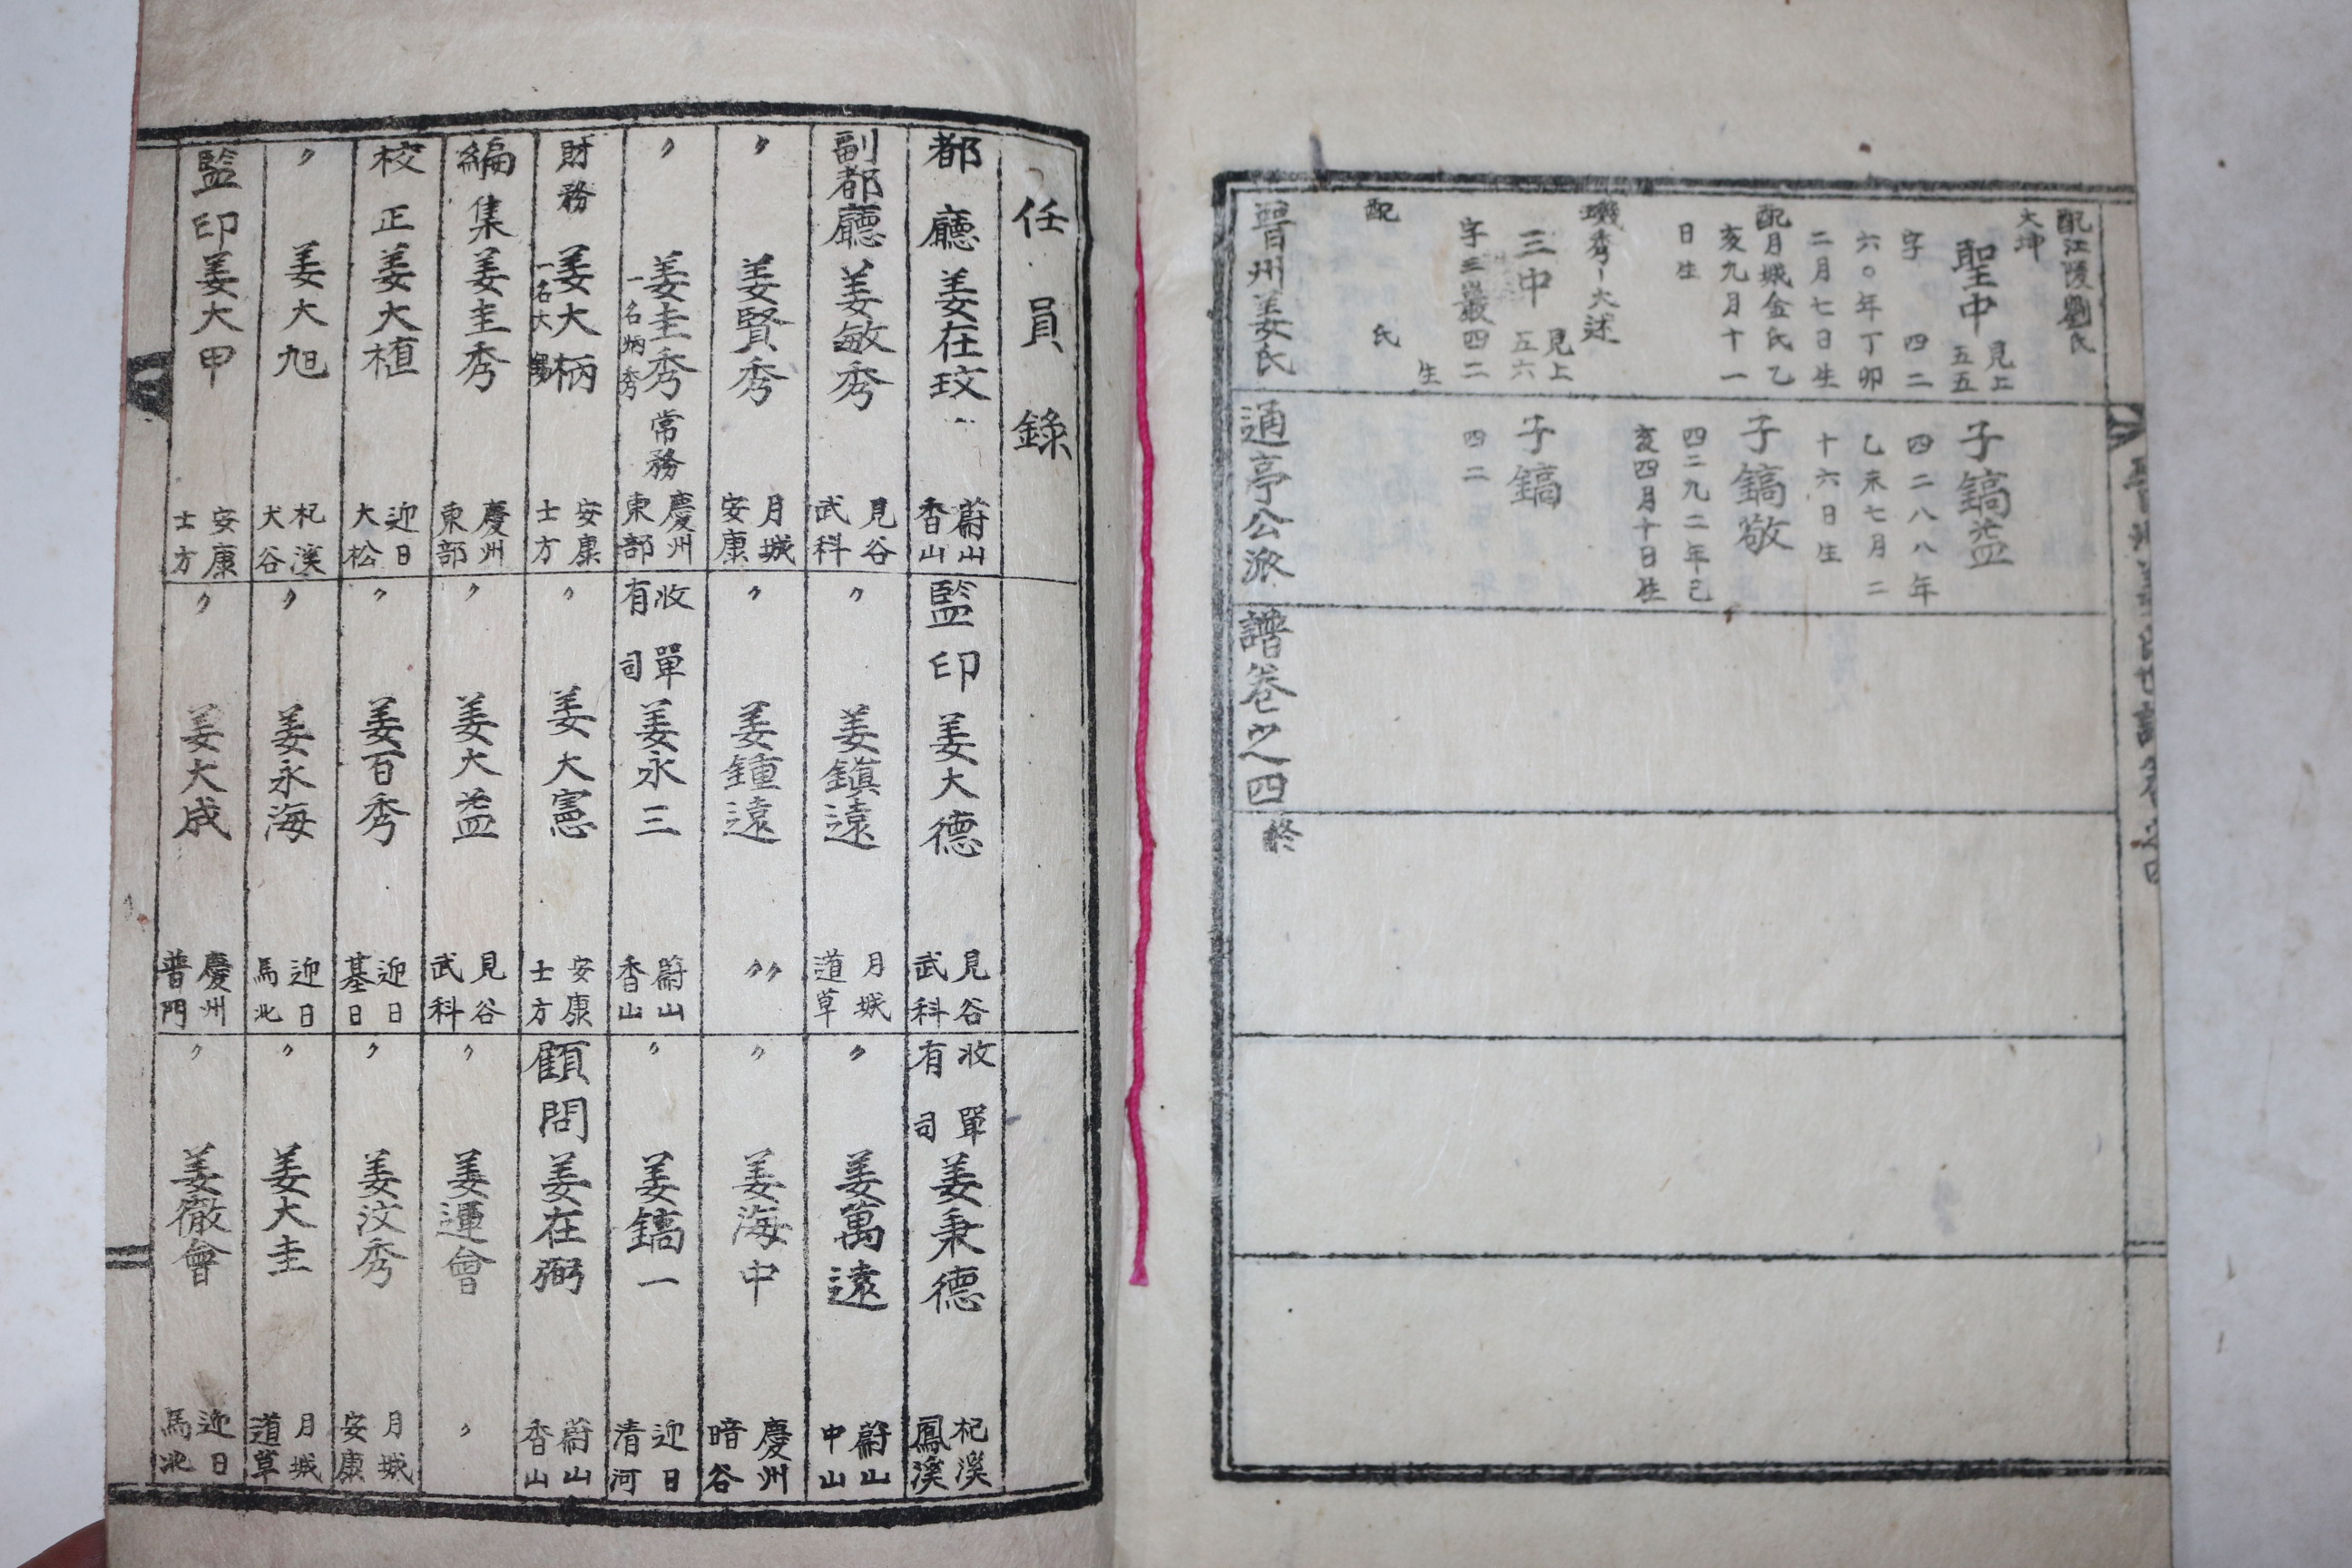 配江陵劉氏
大坤
聖中
見上
五五
字 四二
六〇年丁卯
二月七日生
配月城金氏乙
亥九月十一
日生
璣秀ー大述
三中
見上
五六
字三巖四二
生
配 氏
子鎬益
四二八八年
乙未七月二
十六日生
子鎬敬
四二九二年己
亥四月十日生
子鎬
四二
晉州姜氏通亭公派譜卷之四終
任員錄
都廳姜在玟
蔚山
香山
副都廳姜敏秀
見谷
武科
〃姜賢秀
月城
安康
〃姜圭秀常務
一名炳秀
慶州
東部
財務姜大柄
一名大鍚
安康
士方
編集姜圭秀
慶州
東部
校正姜大植
迎日
大松
〃姜大旭
杞溪
犬谷
監印姜大甲
安康
士方
監印姜大德
見谷
武科
〃姜鎭遠
月城
道草
〃姜鍾遠
〃〃
收單
有司
姜永三
蔚山
香山
〃姜大憲
安康
士方
〃姜大益
見谷
武科
〃姜百秀
迎日
基日
〃姜永海
迎日
馬北
〃姜大成
慶州
普門
收單
有司
姜秉德
杞溪
鳳溪
〃姜萬遠
蔚山
中山
〃姜海中
慶州
暗谷
〃姜鎬一
迎日
清河
顧問姜在弼
蔚山
香山
〃姜運會
〃
〃姜汶秀
月城
安康
〃姜大圭
月城
道草
〃姜徹會
迎日
馬北